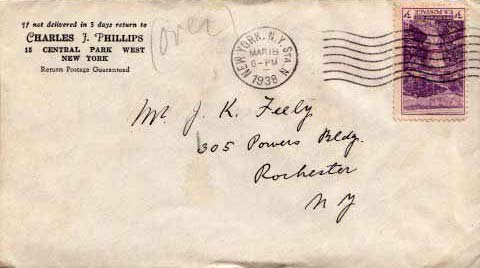 If not delivered in 5 days return to
CHARLES J. PHILLIPS
15 CENTRAL PARK WEST
NEW YORK
Return Postage Guaranteed
(over)
NEW YORK, N.Y. STA. N
MAR 18
6-PM
1938
Mr. J. K. Feely
305 Powers Bldg.
Rochester
N Y